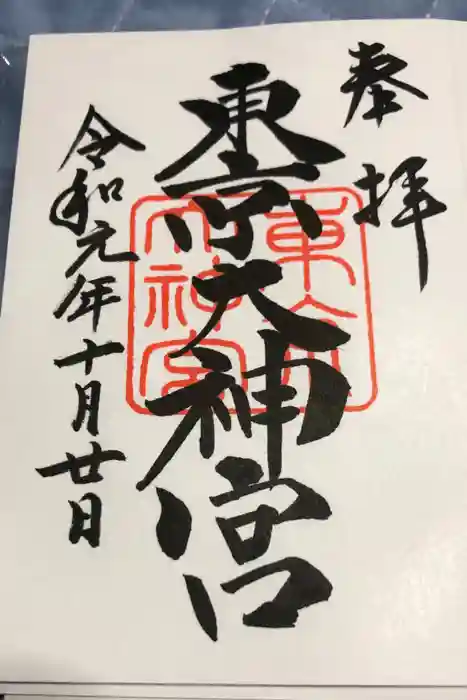 奉拝
東京大神宮
令和元年十月廿日
東京大神宮